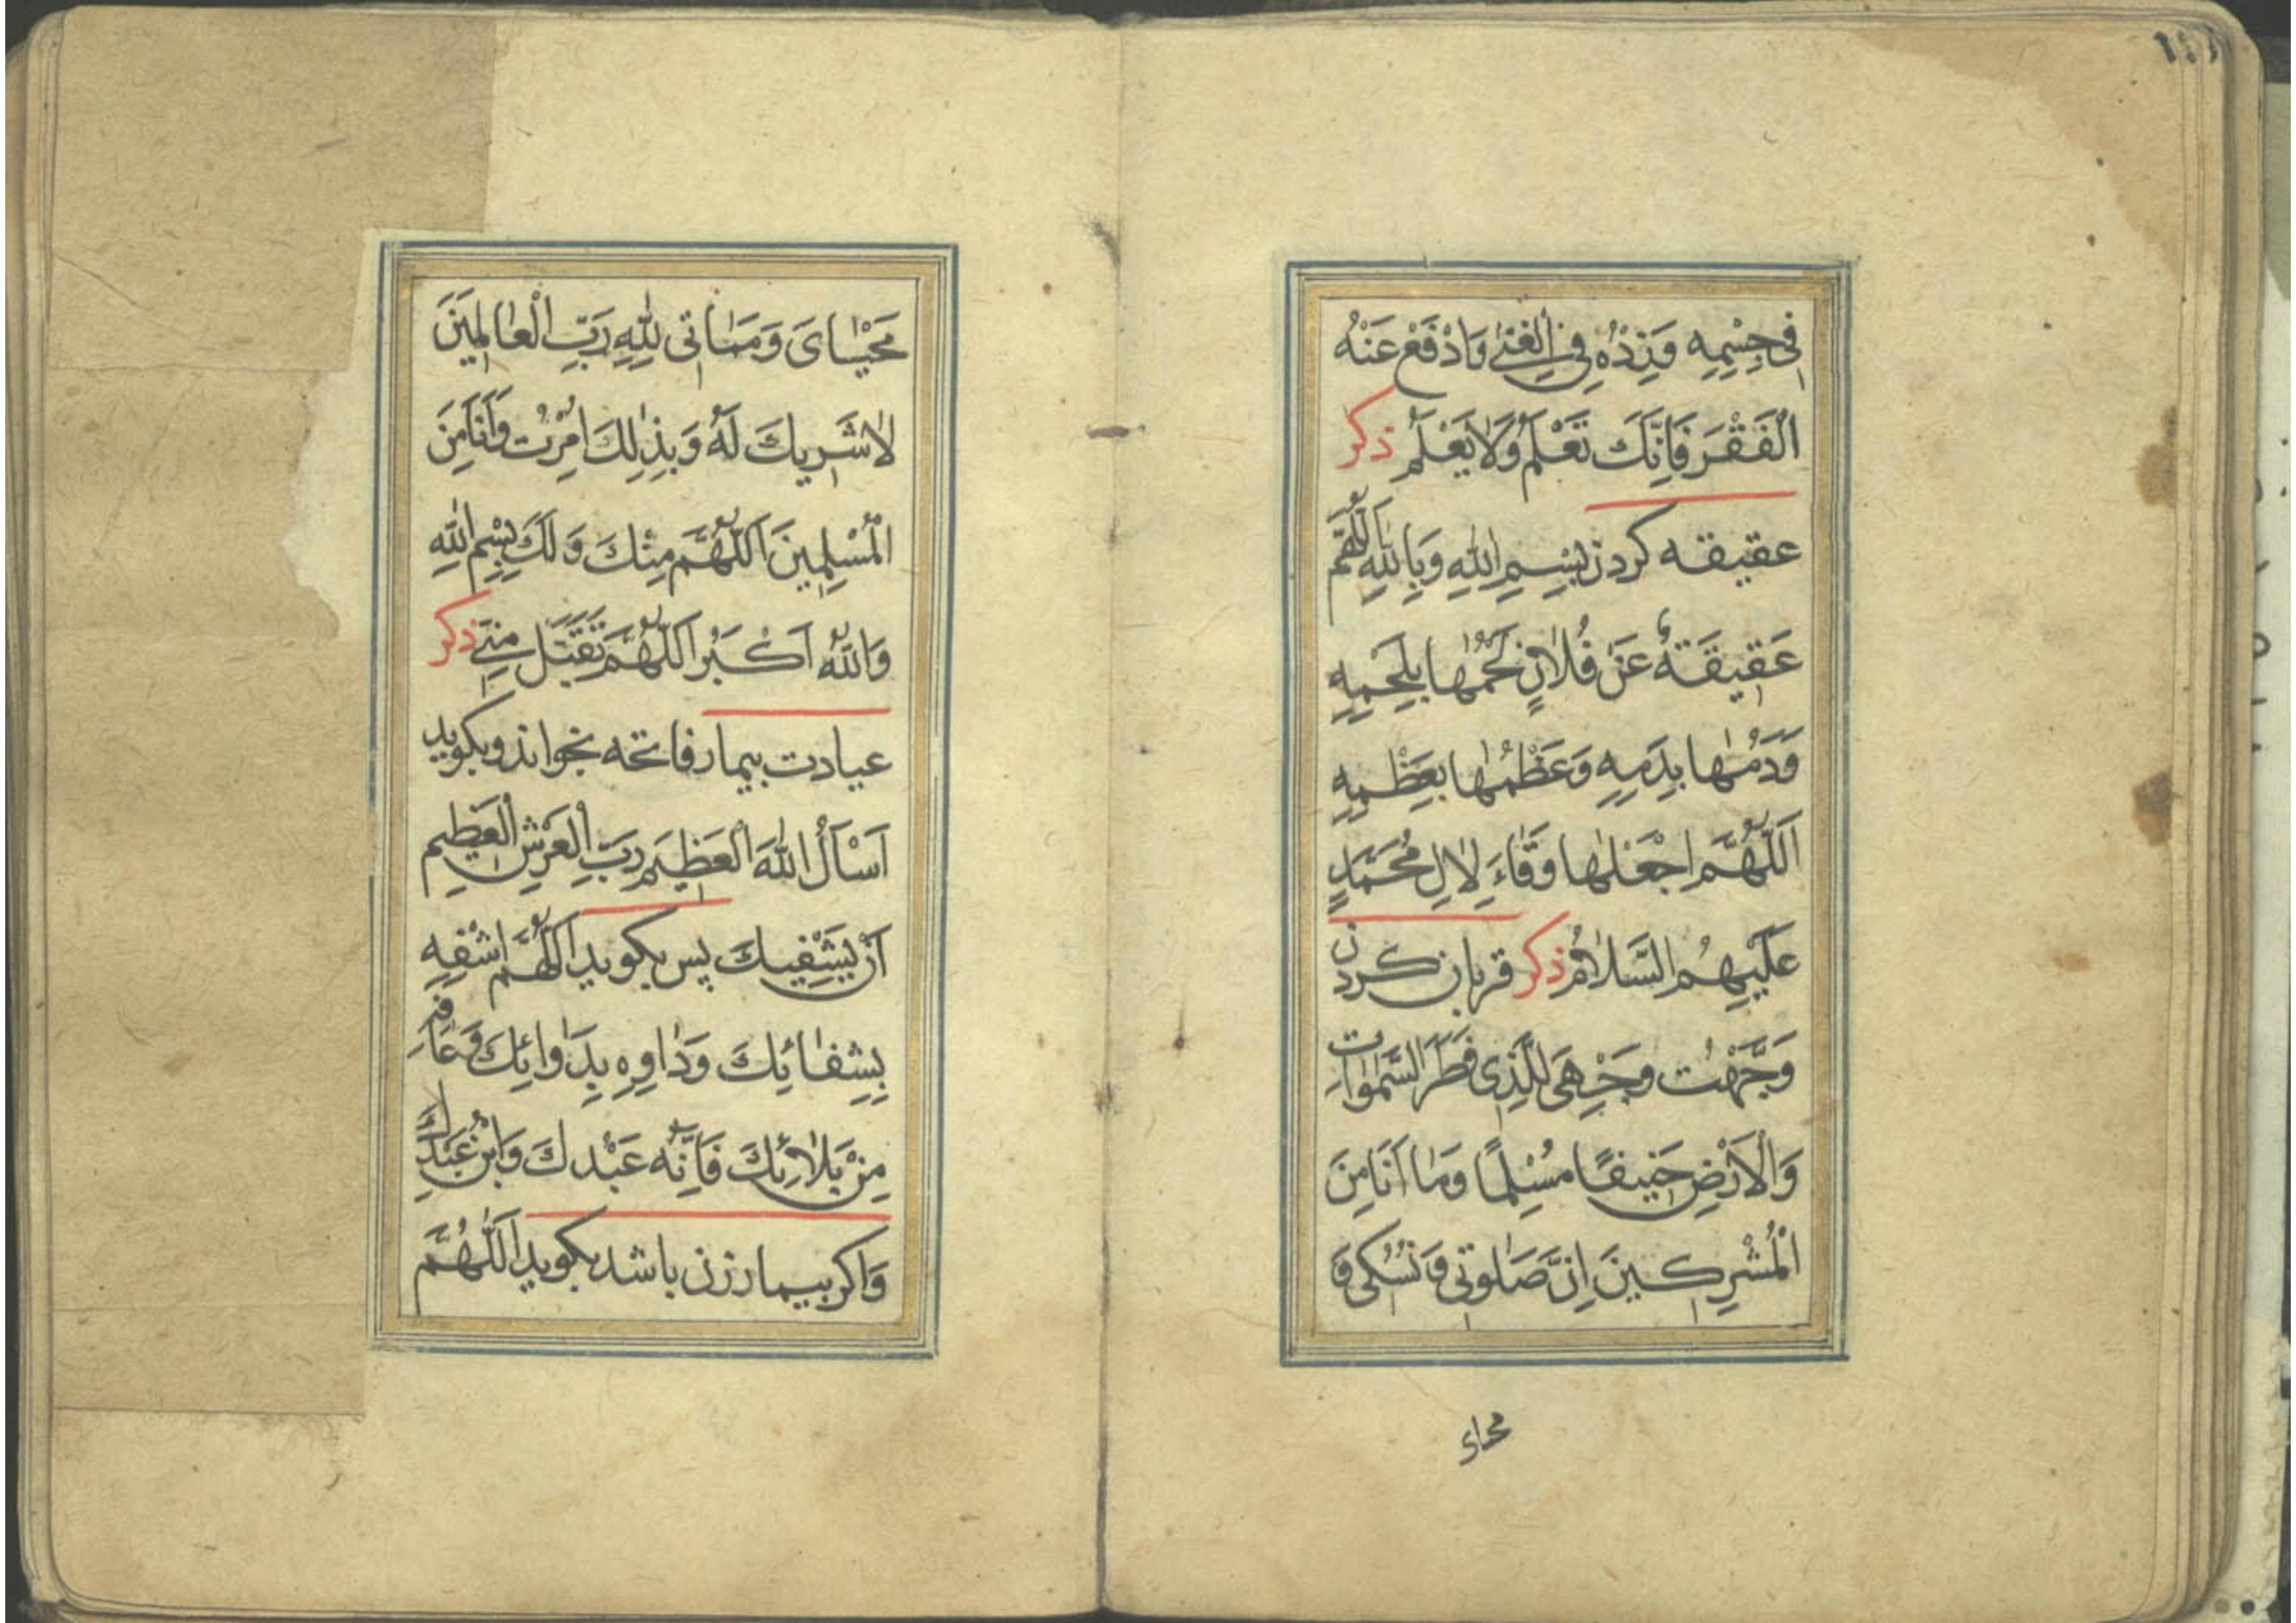 فِی جِسْمِهِ وَزِدْهُ فِی الْغِنٰی وَادْفَعْ عَنْهُ
الْفَقْرَ فَاِنَّكَ تَعْلَمُ وَلَا یَعْلَمُ ذکر
عقیقه کردن بِسْمِ اللهِ وَبِاللهِ اَللّٰهُمَّ
عَقِیقَةٌ عَنْ فُلَانٍ لَحْمُهٰا بِلَحْمِهِ
وَدَمُهٰا بِدَمِهِ وَعَظْمُهٰا بِعَظْمِهِ
اَللّٰهُمَّ اجْعَلْهٰا وِقٰاءً لِاٰلِ مُحَمَّدٍ
عَلَیْهِمُ السَّلَامُ ذکر قربان کردن
وَجَّهْتُ وَجْهِیَ لِلَّذِی فَطَرَ السَّمٰوَاتِ
وَالْاَرْضِ حَنِیفًا مُسْلِمًا وَمٰا اَنَا مِنَ
الْمُشْرِکِینَ اِنَّ صَلٰوتِی وَنُسُکِی وَ
محیای
مَحْیٰایَ وَمَمٰاتِی لِلّٰهِ رَبِّ الْعٰالَمِینَ
لَا شَرِیكَ لَهُ وَبِذٰلِكَ اُمِرْتُ وَاَنَا مِنَ
الْمُسْلِمِینَ اَللّٰهُمَّ مِنْكَ وَلَكَ بِسْمِ اللهِ
وَاللهُ اَکْبَرُ اَللّٰهُمَّ تَقَبَّلْ مِنِّی ذکر
عیادت بیمار فاتحه بخواند و بکوید
اَسْاَلُ اللهَ الْعَظِیمَ رَبَّ الْعَرْشِ الْعَظِیمِ
اَنْ یَشْفِیَكَ پس بکوید اَللّٰهُمَّ اشْفِهِ
بِشِفٰائِكَ وَدٰاوِهِ بِدَوٰائِكَ وَعَافِهِ
مِنْ بَلَائِكَ فَاِنَّهُ عَبْدُكَ وَابْنُ عَبْدِكَ
وَاکر بیمار زن باشد بکوید اَللّٰهُمَّ